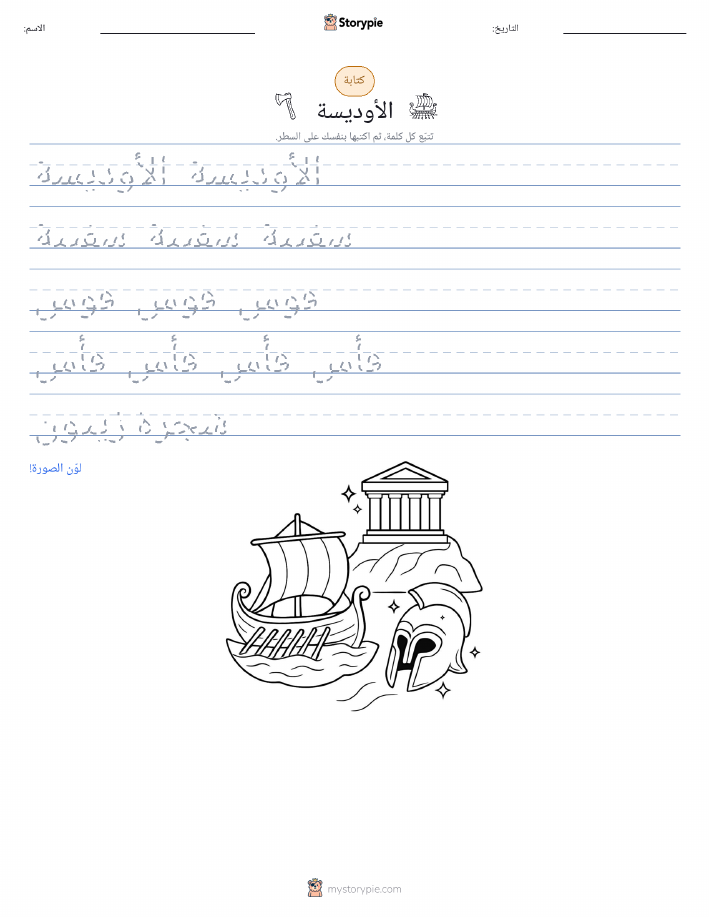 الاسم:
Storypie
التاريخ:
كتابة
الأوديسة
تتبّع كل كلمة، ثم اكتبها بنفسك على السطر.
الأوديسة الأوديسة
سفينة سفينة سفينة
قوس قوس قوس
فأس فأس فأس فأس
شجرة زيتون
لوّن الصورة!
mystorypie.com